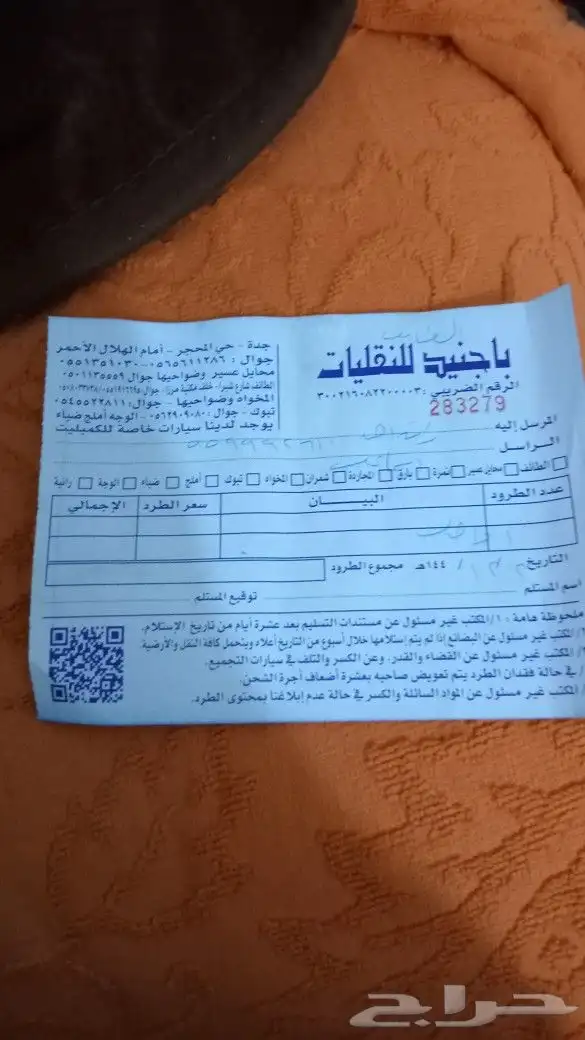 باجنيد للنقليات
الرقم الضريبي: ٣٠٠٢١٦٠٨٢٢٠٠٠٠٣
283279
جدة - حي المحجر - أمام الهلال الأحمر
جوال: ٠٥٦٥٦١١٢٨٦ - ٠٥٥١٣٥١٠٣٠
محايل عسير وضواحيها جوال ٠٥٠١١٣٥٥٥٩
المخواه وضواحيها - جوال: ٠٥٤٥٥٢٢٨١١
تبوك - جوال: ٠٥٦٢٩٠٩٠٨٠ - الوجه أملج ضباء
يوجد لدينا سيارات خاصة للكميليت
المرسل إليه
الراسل
الطائف محايل عسير نمرة بارق المجاردة شمران المخواه تبوك أملج ضباء الوجة رانية
عدد الطرود البيــــان سعر الطرد الإجمالي
التاريخ / / ١٤٤هـ مجموع الطرود
اسم المستلم توقيع المستلم
ملحوظة هامة: ١/ المكتب غير مسئول عن مستندات التسليم بعد عشرة أيام من تاريخ الإستلام.
المكتب غير مسئول عن البضائع إذا لم يتم إستلامها خلال أسبوع من التاريخ أعلاه ويتحمل كافة النقل والأرضية.
المكتب غير مسئول عن القضاء والقدر، وعن الكسر والتلف في سيارات التجميع.
في حالة فقدان الطرد يتم تعويض صاحبه بعشرة أضعاف أجرة الشحن.
المكتب غير مسئول عن المواد السائلة والكسر في حالة عدم إبلاغنا بمحتوى الطرد.
حراج